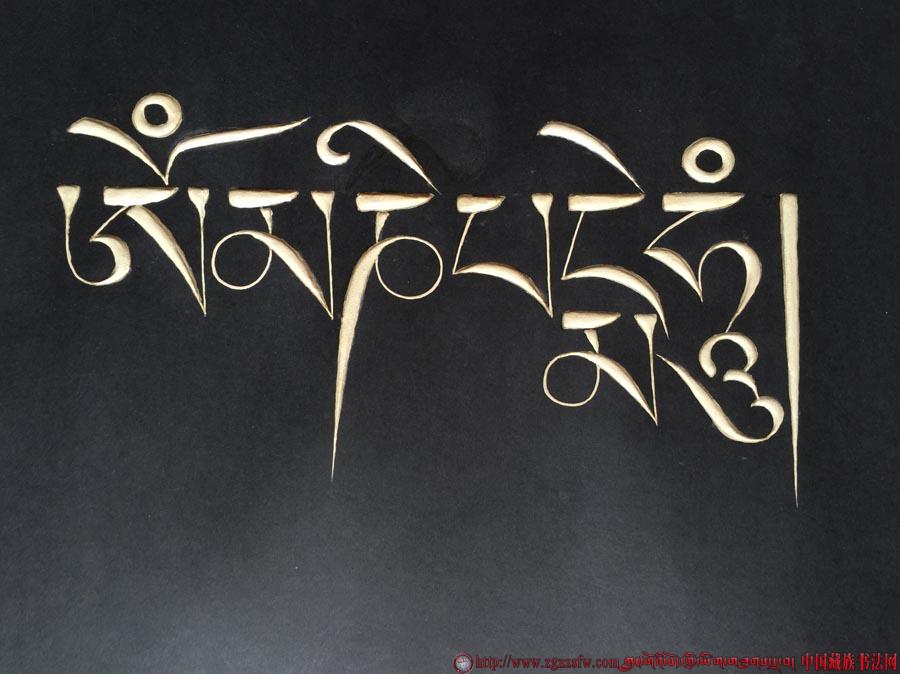 ༀམཎིཔདྨེཧཱུྃ།
http://www.zgzzsfw.com
中国藏族书法网